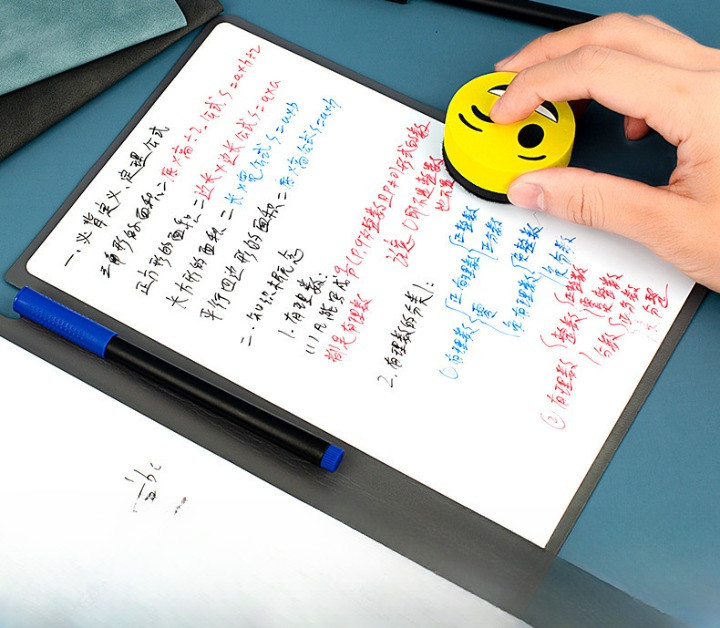 一.必背定义、定理公式
三角形的面积=底×高÷2.公式 S=a×h÷2
正方形的面积=边长×边长公式S=a×a
长方形的面积=长×宽公式S=a×b
平行四边形的面积=底×高公式S=a×h
二.知识点概念
1.有理数:
(1)凡能写成
(p,q为整数且p≠0)形式的数
都是有理数
注意:0即不是
也不是
2.有理数的分类1:
①有理数
正有理数
正整数
正分数
零
负有理数
负整数
负分数
②有理数
整数
正整数
零
负整数
分数
正分数